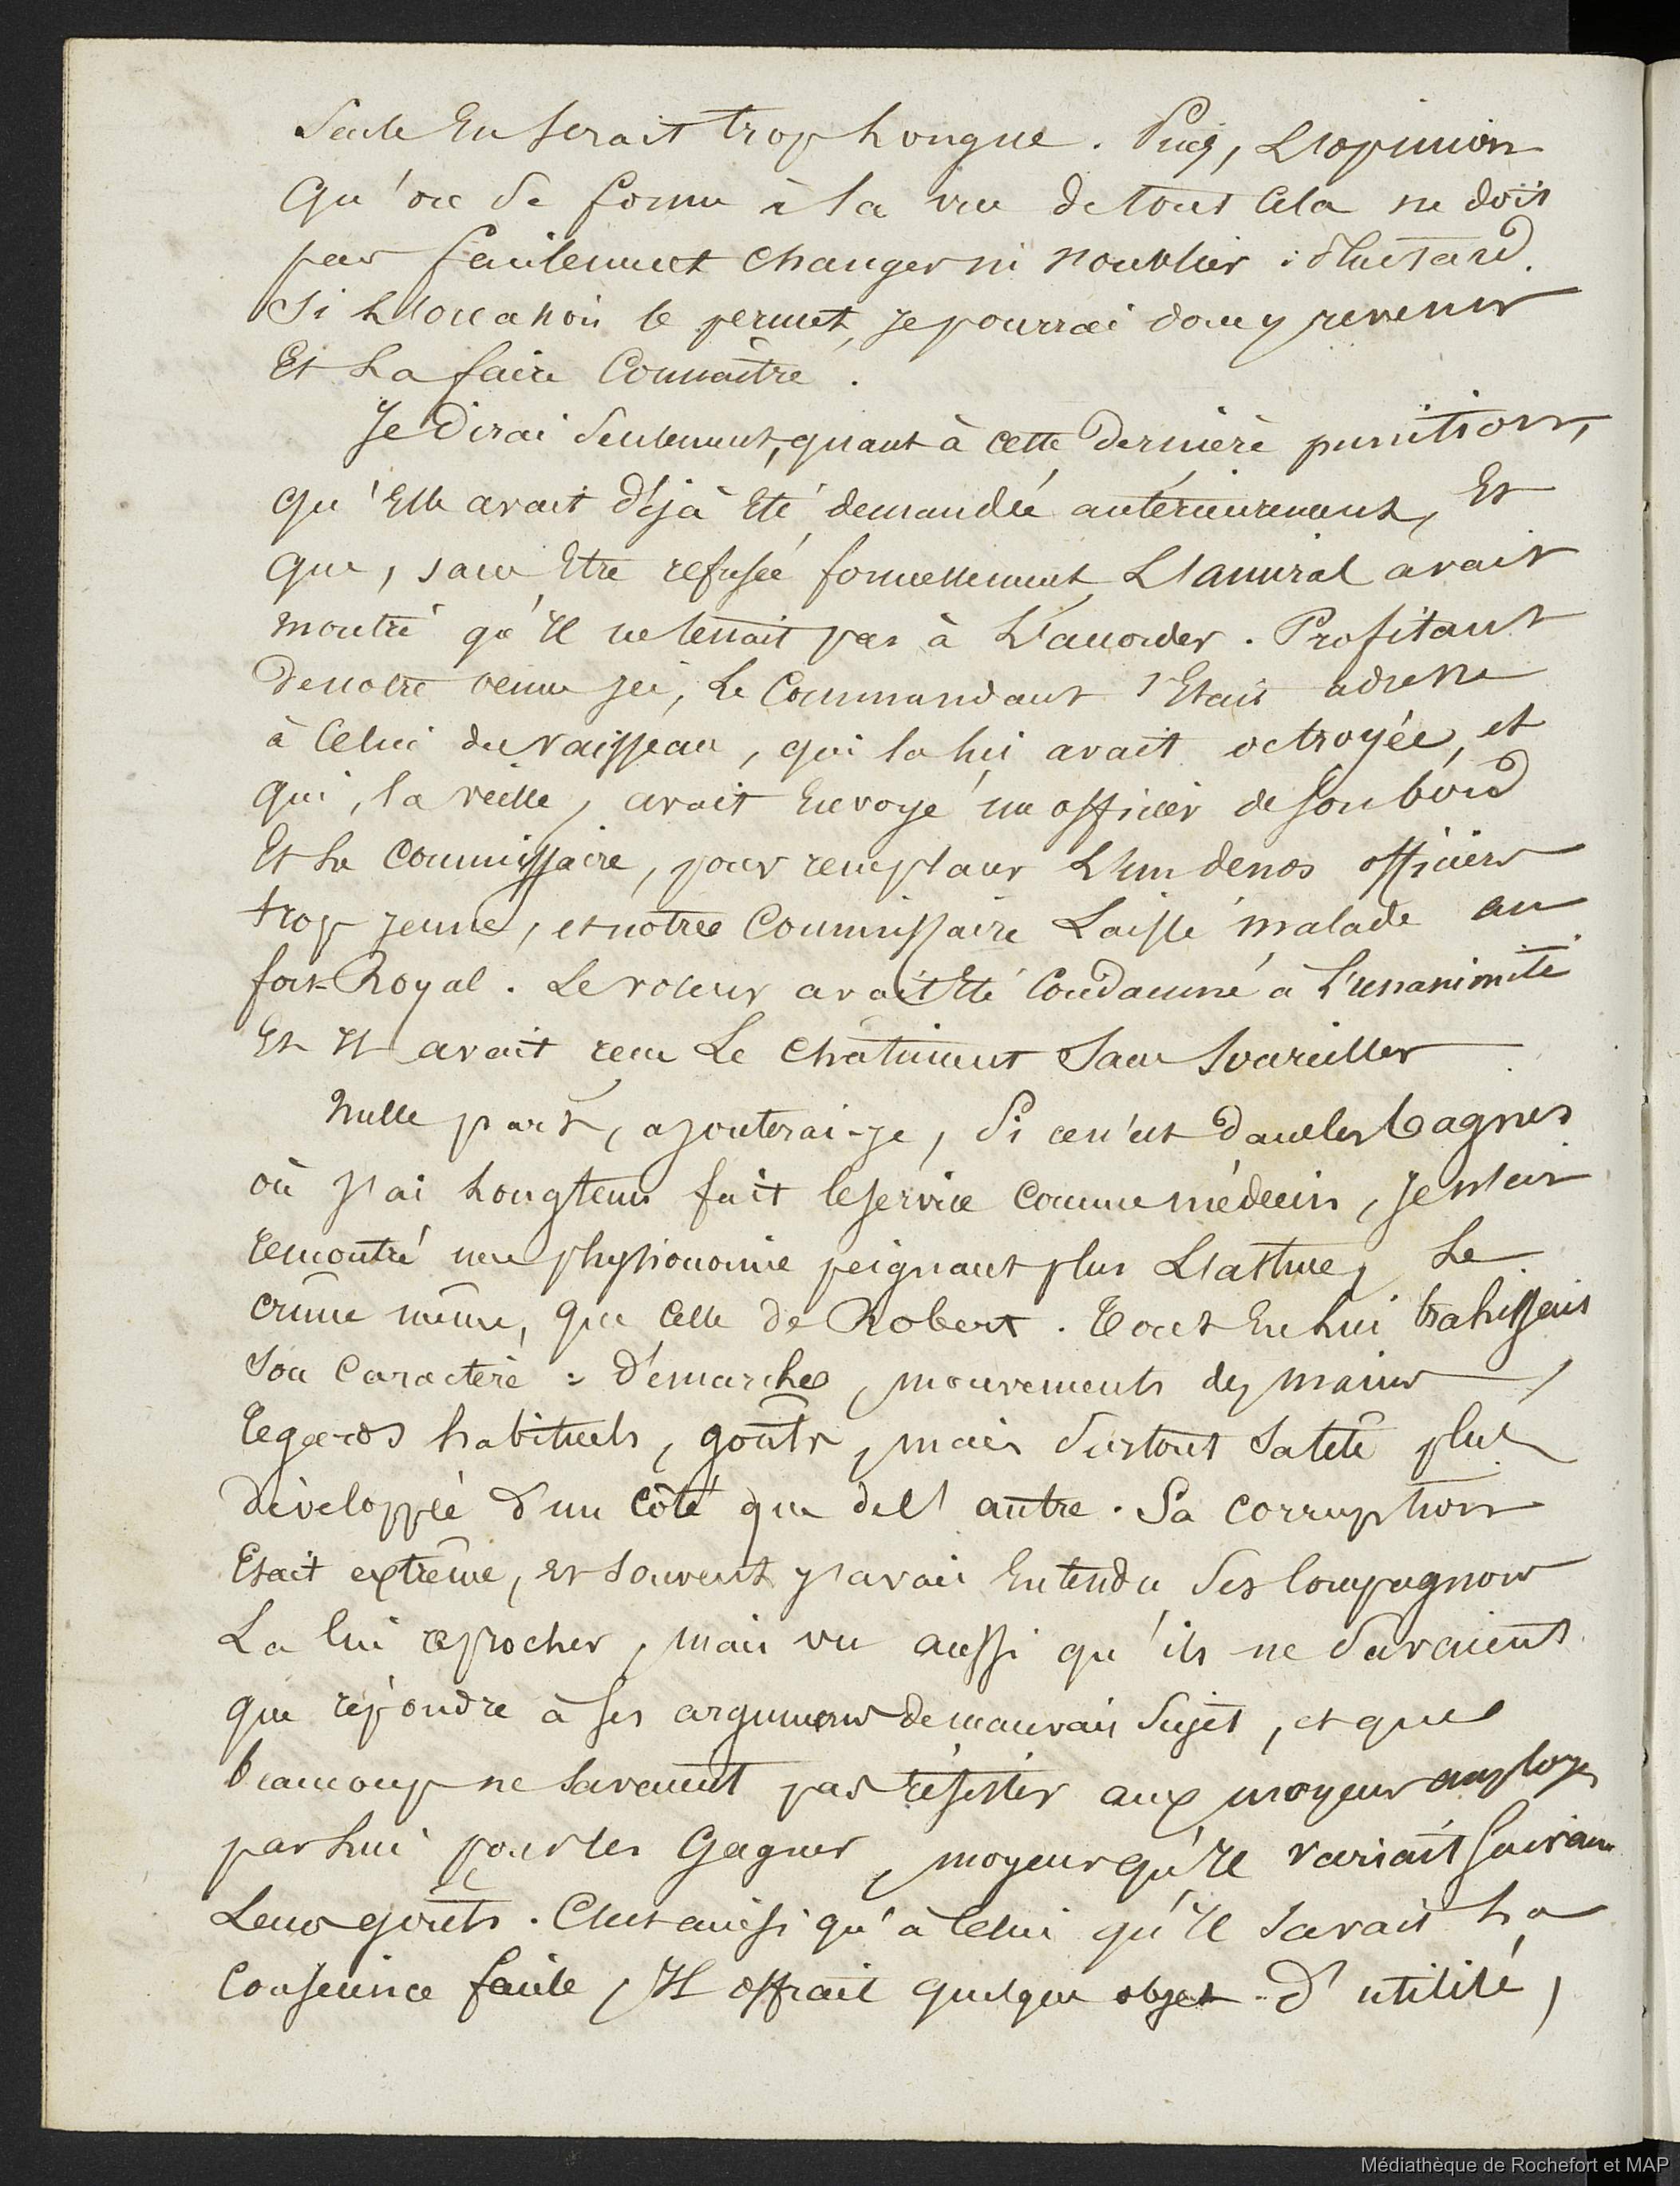 seule en serait trop longue. Puis, l'opinion
qu'on se forme à la vue de tout cela ne doit
pas facilement changer ni s'oublier : plus tard,
si l'occasion le permet, je pourrai donc y revenir
et la faire connaître.
Je dirai seulement, quant à cette dernière punition,
qu'elle avait déjà été demandée antérieurement, et
que, sans être refusée formellement, l'amiral avait
montré qu'il ne tenait pas à l'accorder. Profitant
de notre venue ici, le Commandant s'était adressé
à celui du vaisseau, qui la lui avait octroyée, et
qui, la veille, avait envoyé un officier de son bord
et le Commissaire, pour remplacer l'un de nos officiers
trop jeune, et notre Commissaire laissé malade au
fort-Royal. Le voleur avait été condamné à l'unanimité
et il avait reçu le châtiment sans sourciller
Nulle part, ajouterai-je, si ce n'est dans les bagnes
où j'ai longtems fait le service comme médecin, je n'ai
rencontré une physionomie peignant plus l'astuce, le
crime même, que celle de Robert. Tout en lui trahissait
son caractère : démarche, mouvements des mains,
regards habituels, goûts, mais surtout sa tête plus
développée d'un côté que de l'autre. Sa corruption
était extrême, et souvent j'avais entendu ses compagnons
la lui reprocher, mais vu aussi qu'ils ne savaient
que répondre à ses argumens de mauvais sujet, et que
beaucoup ne savaient pas résister aux moyens employés
par lui pour les gagner, moyens qu'il variait suivant
leurs goûts. C'est ainsi qu'à celui qu'il savait la
conscience facile, il offrait quelque objet d'utilité,
Médiathèque de Rochefort et MAP